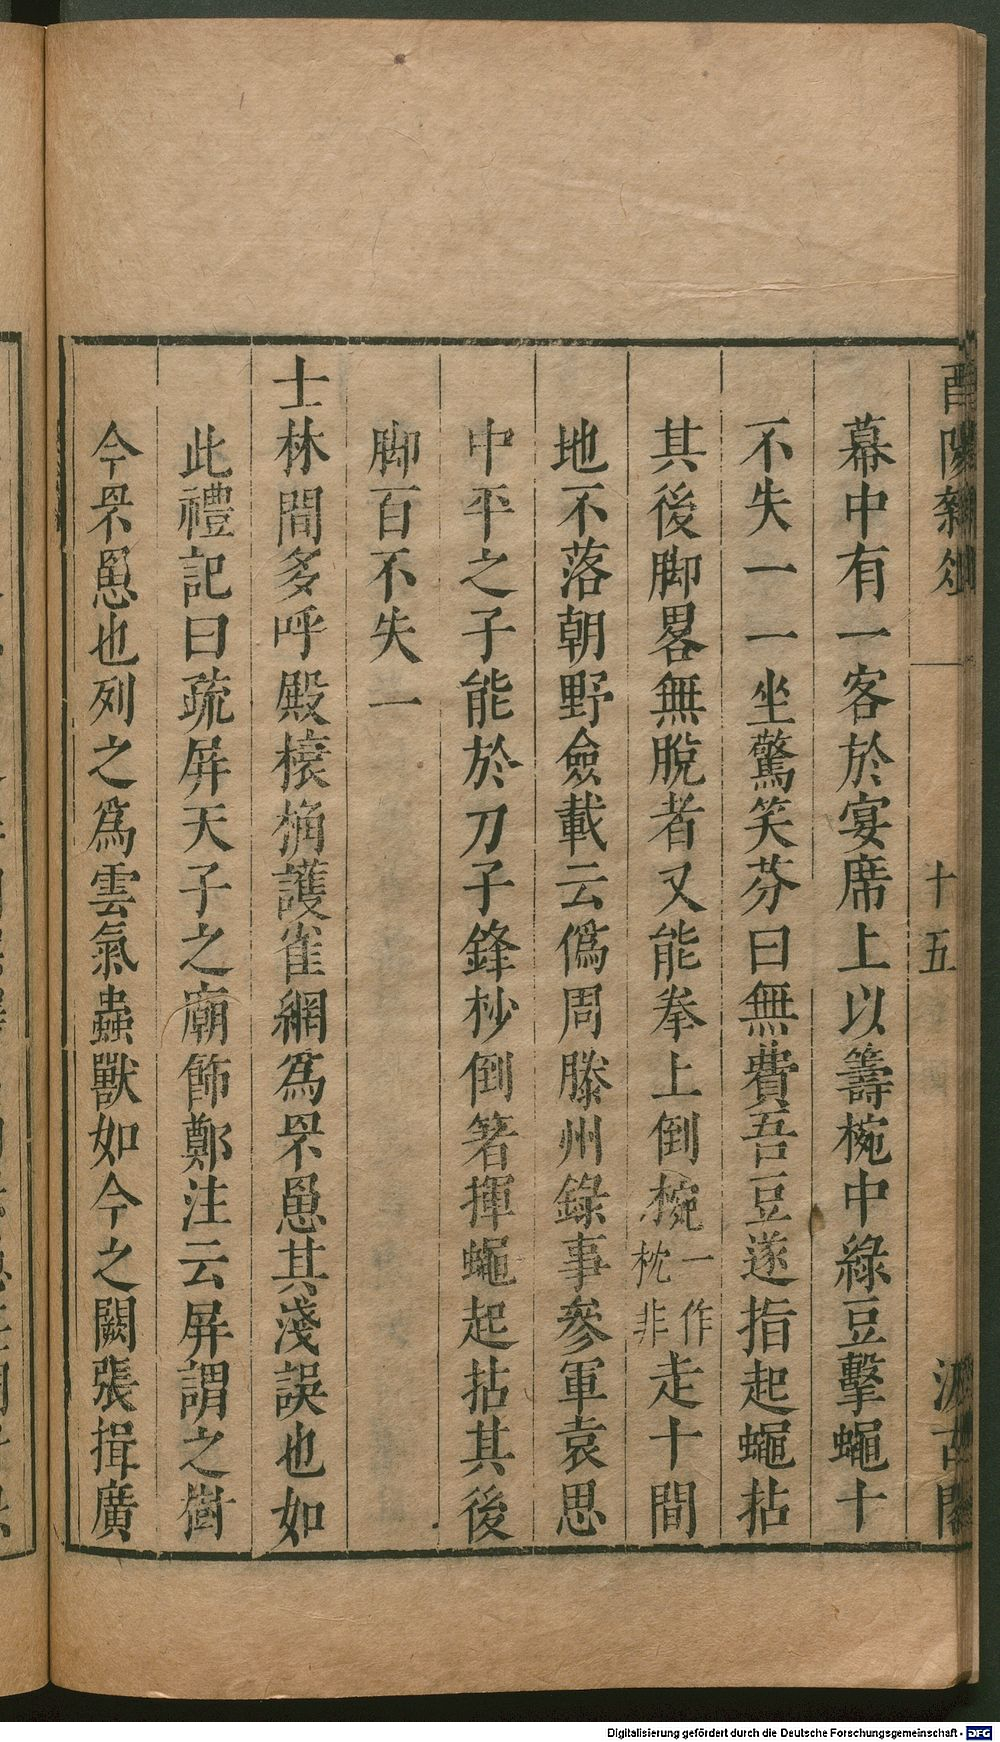 酉陽雜俎 十五 汲古閣
幕中有一客於宴席上以籌椀中綠豆擊蠅十
不失一一坐驚笑芬曰無費吾豆遂指起蠅拈
其後脚畧無脫者又能拳上倒椀一作枕非走十間
地不落朝野僉載云僞周滕州錄事參軍袁思
中平之子能於刀子鋒杪倒箸揮蠅起拈其後
脚百不失一
士林間多呼殿榱桷護雀網爲罘罳其淺誤也如
此禮記曰疏屏天子之廟飾鄭注云屏謂之樹
今罘罳也列之爲雲氣蟲獸如今之闕張揖廣
Digitalisierung gefördert durch die Deutsche Forschungsgemeinschaft - DFG